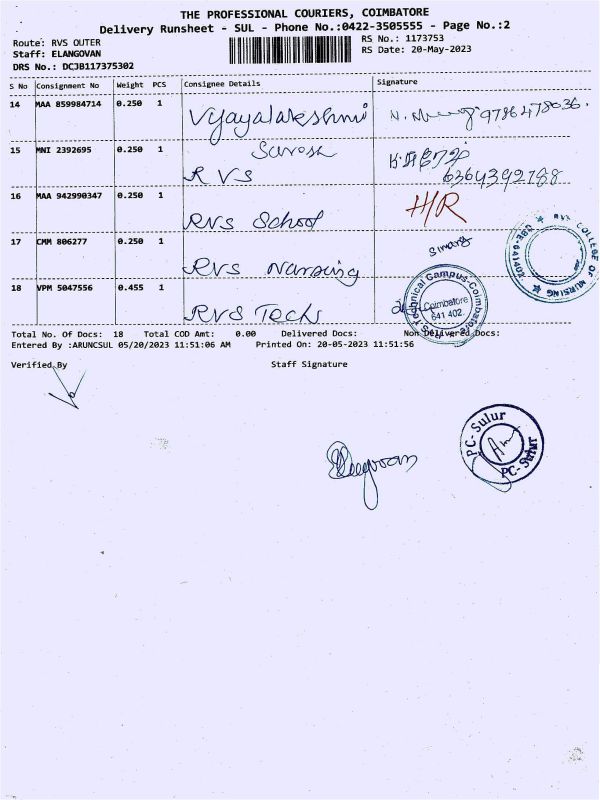 THE PROFESSIONAL COURIERS, COIMBATORE
Delivery Runsheet - SUL - Phone No.:0422-3505555 - Page No.:2
Route: RVS OUTER
RS No.: 1173753
Staff: ELANGOVAN
RS Date: 20-May-2023
DRS No.: DCJB117375302
S No Consignment No Weight PCS Consignee Details Signature
14 MAA 859984714 0.250 1 Vijayalakshmi 9786478036.
15 MNI 2392695 0.250 1
RVS 6364392788
16 MAA 942990347 0.250 1 H/R
RVS School
17 CMM 806277 0.250 1
RVS Nursing
RVS COLLEGE OF NURSING
CBE-641402
18 VPM 5047556 0.455 1
RVS Techs
RVS Technical Campus-Coimbatore
Coimbatore
641 402.
Total No. Of Docs: 18 Total COD Amt: 0.00 Delivered Docs: Non Delivered Docs:
Entered By :ARUNCSUL 05/20/2023 11:51:06 AM Printed On: 20-05-2023 11:51:56
Verified By Staff Signature
PC-Sulur
PC-Sulur